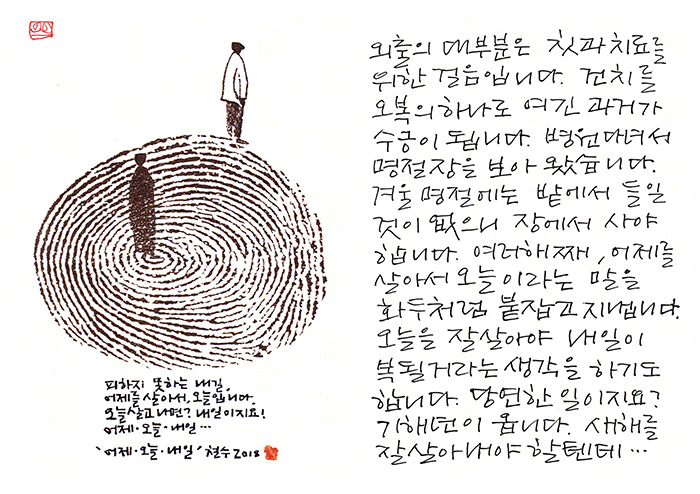 피하지 못하는 내길,
어제를 살아서, 오늘입니다.
오늘 살고 나면? 내일이지요!
어제·오늘·내일…
'어제·오늘·내일' 철수 2018
외출의 대부분은 칫과치료를
위한 걸음입니다. 건치를
오복의 하나로 여긴 과거가
수긍이 됩니다. 병원다녀서
명절장을 보아 왔습니다.
겨울 명절에는 밭에서 들일
것이 없으니 장에서 사야
합니다. 여러해째, 어제를
살아서 오늘이라는 말을
화두처럼 붙잡고 지냅니다.
오늘을 잘살아야 내일이
복될거라는 생각을 하기도
합니다. 당연한 일이지요?
기해년이 옵니다. 새해를
잘살아내야 할텐데…